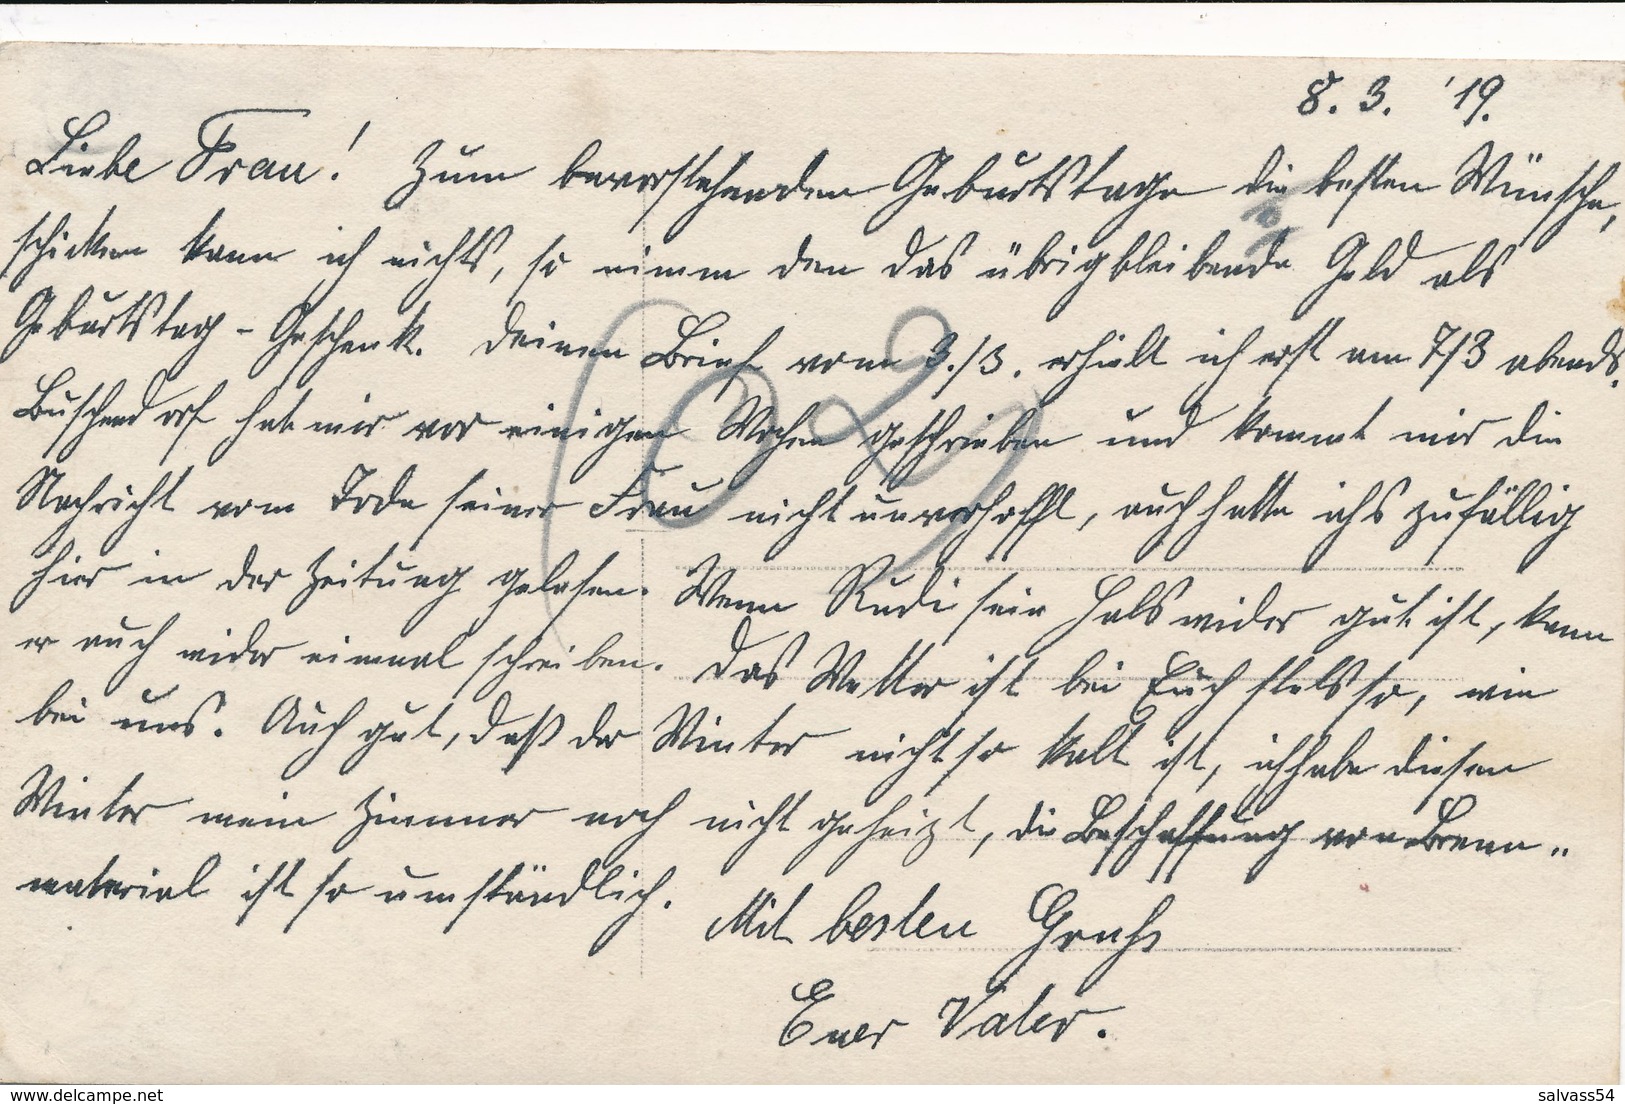 8. 3. '19.
Liebe Frau! Zum bevorstehenden Geburtstage die besten Wünsche,
schicken kann ich nichts, so nimm den das übrigbleibende Geld als
Geburtstag-Geschenk. Deinen Brief vom 3./3. erhielt ich erst am 7/3 abends.
Buschendorf hat mir vor einigen Wochen geschrieben und kommt mir die
Nachricht vom Tode seiner Frau nicht unverhofft, auch hatte ichs zufällig
hier in der Zeitung gelesen. Wenn Rudi sein Hals wider gut ist, kann
er auch wider einmal schreiben. Das Wetter ist bei Euch stets so, wie
bei uns. Auch gut, daß der Winter nicht so kalt ist, ich habe diesen
Winter mein Zimmer noch nicht geheizt, die Beschaffung von Brenn„
material ist so umständlich.
Mit besten Gruhs
Euer Vater.
delcampe.net
salvass54